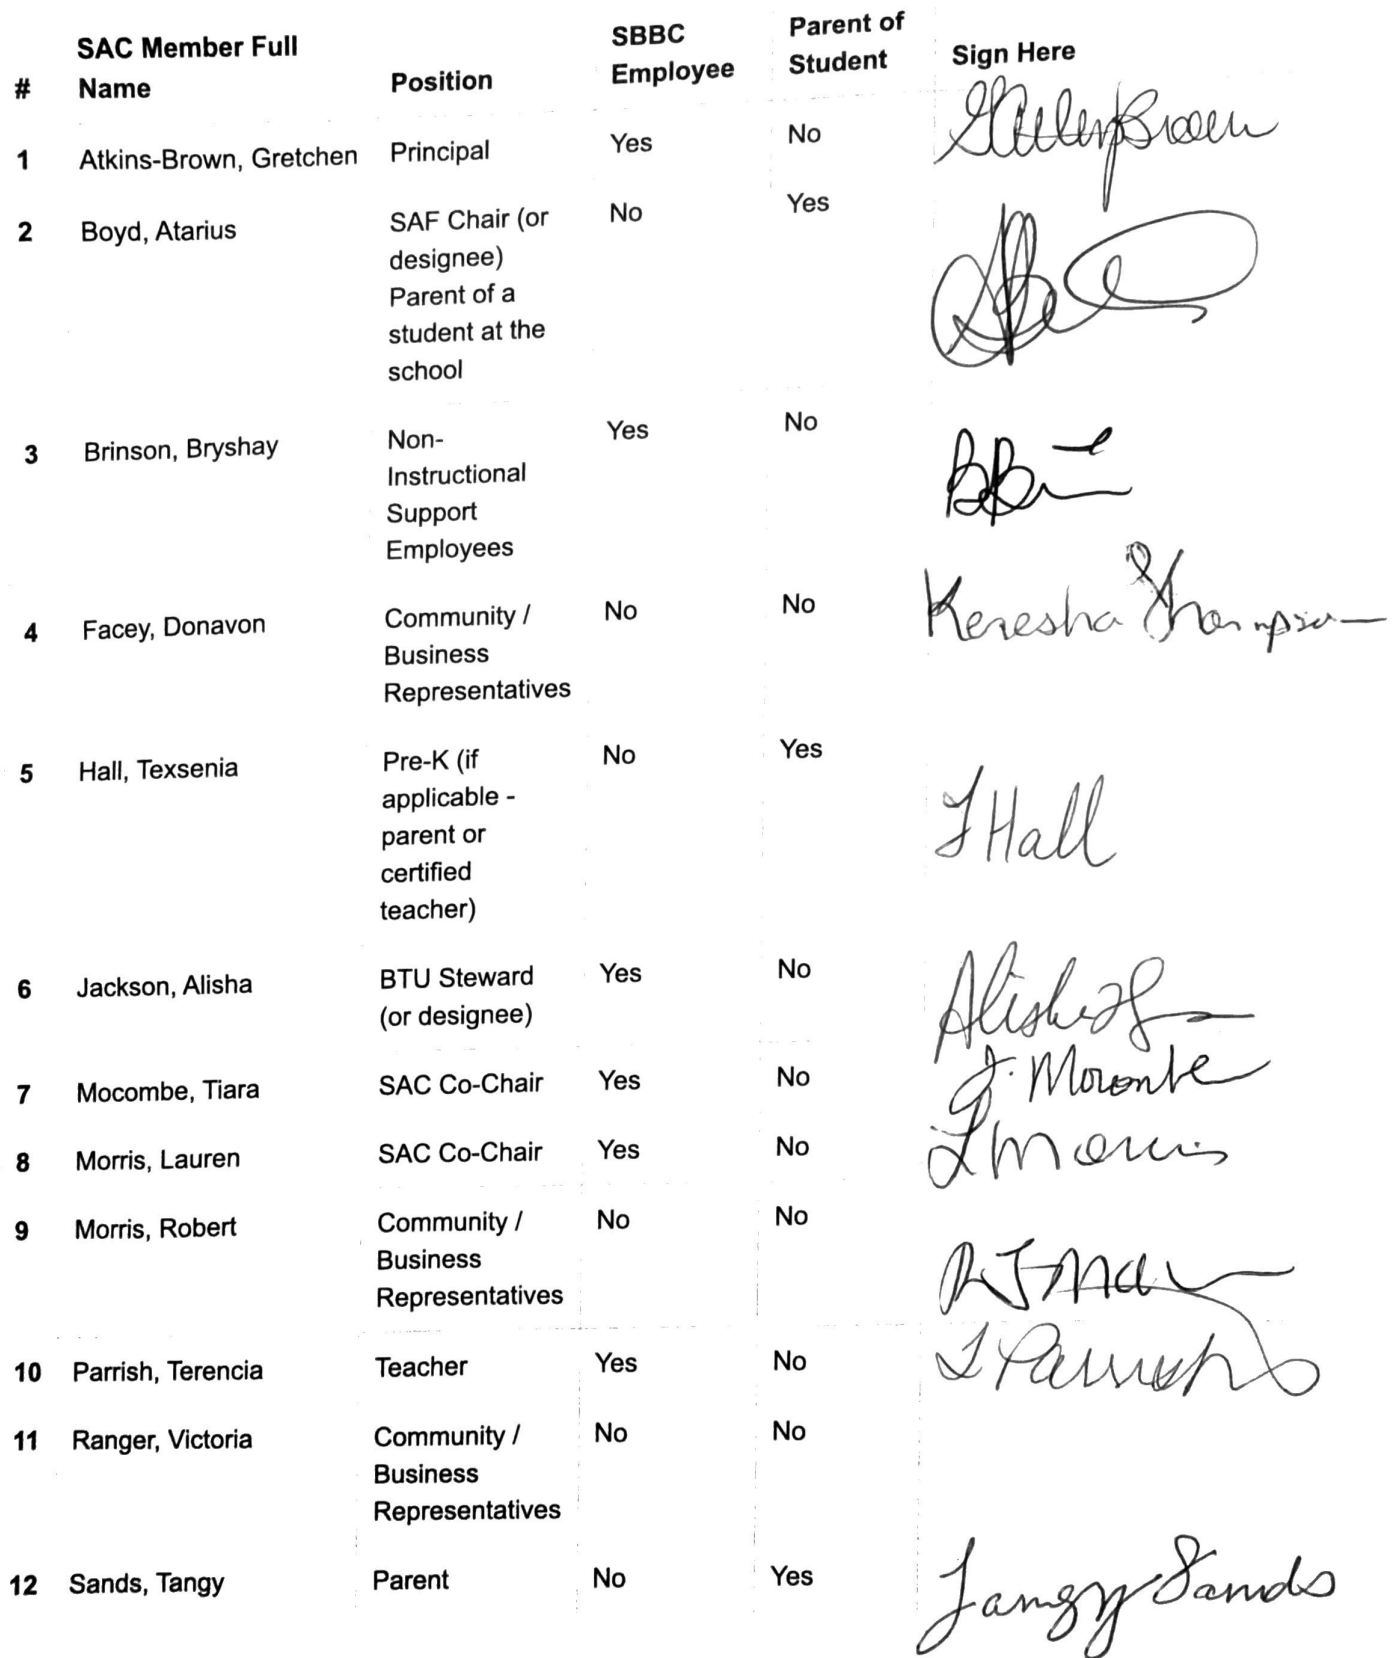 # SAC Member Full Name Position SBBC Employee Parent of Student Sign Here
1 Atkins-Brown, Gretchen Principal Yes No
2 Boyd, Atarius SAF Chair (or designee) Parent of a student at the school No Yes
3 Brinson, Bryshay Non-Instructional Support Employees Yes No
4 Facey, Donavon Community / Business Representatives No No Keresha Thompson
5 Hall, Texsenia Pre-K (if applicable - parent or certified teacher) No Yes T Hall
6 Jackson, Alisha BTU Steward (or designee) Yes No Alisha
7 Mocombe, Tiara SAC Co-Chair Yes No T. Mocombe
8 Morris, Lauren SAC Co-Chair Yes No L Morris
9 Morris, Robert Community / Business Representatives No No
10 Parrish, Terencia Teacher Yes No T Parrish
11 Ranger, Victoria Community / Business Representatives No No
12 Sands, Tangy Parent No Yes Tangy Sands